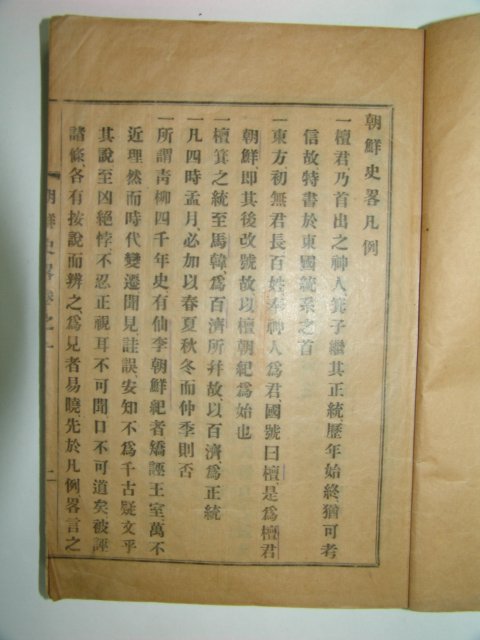 朝鮮史畧凡例
一檀君乃首出之神人箕子繼其正統歷年始終猶可考
信故特書於東國統系之首
一東方初無君長百姓奉神人爲君、國號曰檀、是爲檀君
朝鮮即其後改號故以檀朝紀爲始也
一檀箕之統至馬韓、爲百濟所幷故以百濟爲正統
一凡四時孟月、必加以春夏秋冬而仲季則否
一所謂靑柳四千年史有仙李朝鮮紀者矯誣王室萬不
近理然而時代變遷聞見詿誤、安知不爲千古疑文乎
其說至凶絕悖、不忍正視耳不可聞口不可道矣、被誣
諸條各有按說而辨之、爲見者易曉先於凡例畧言之
朝鮮史畧卷之一